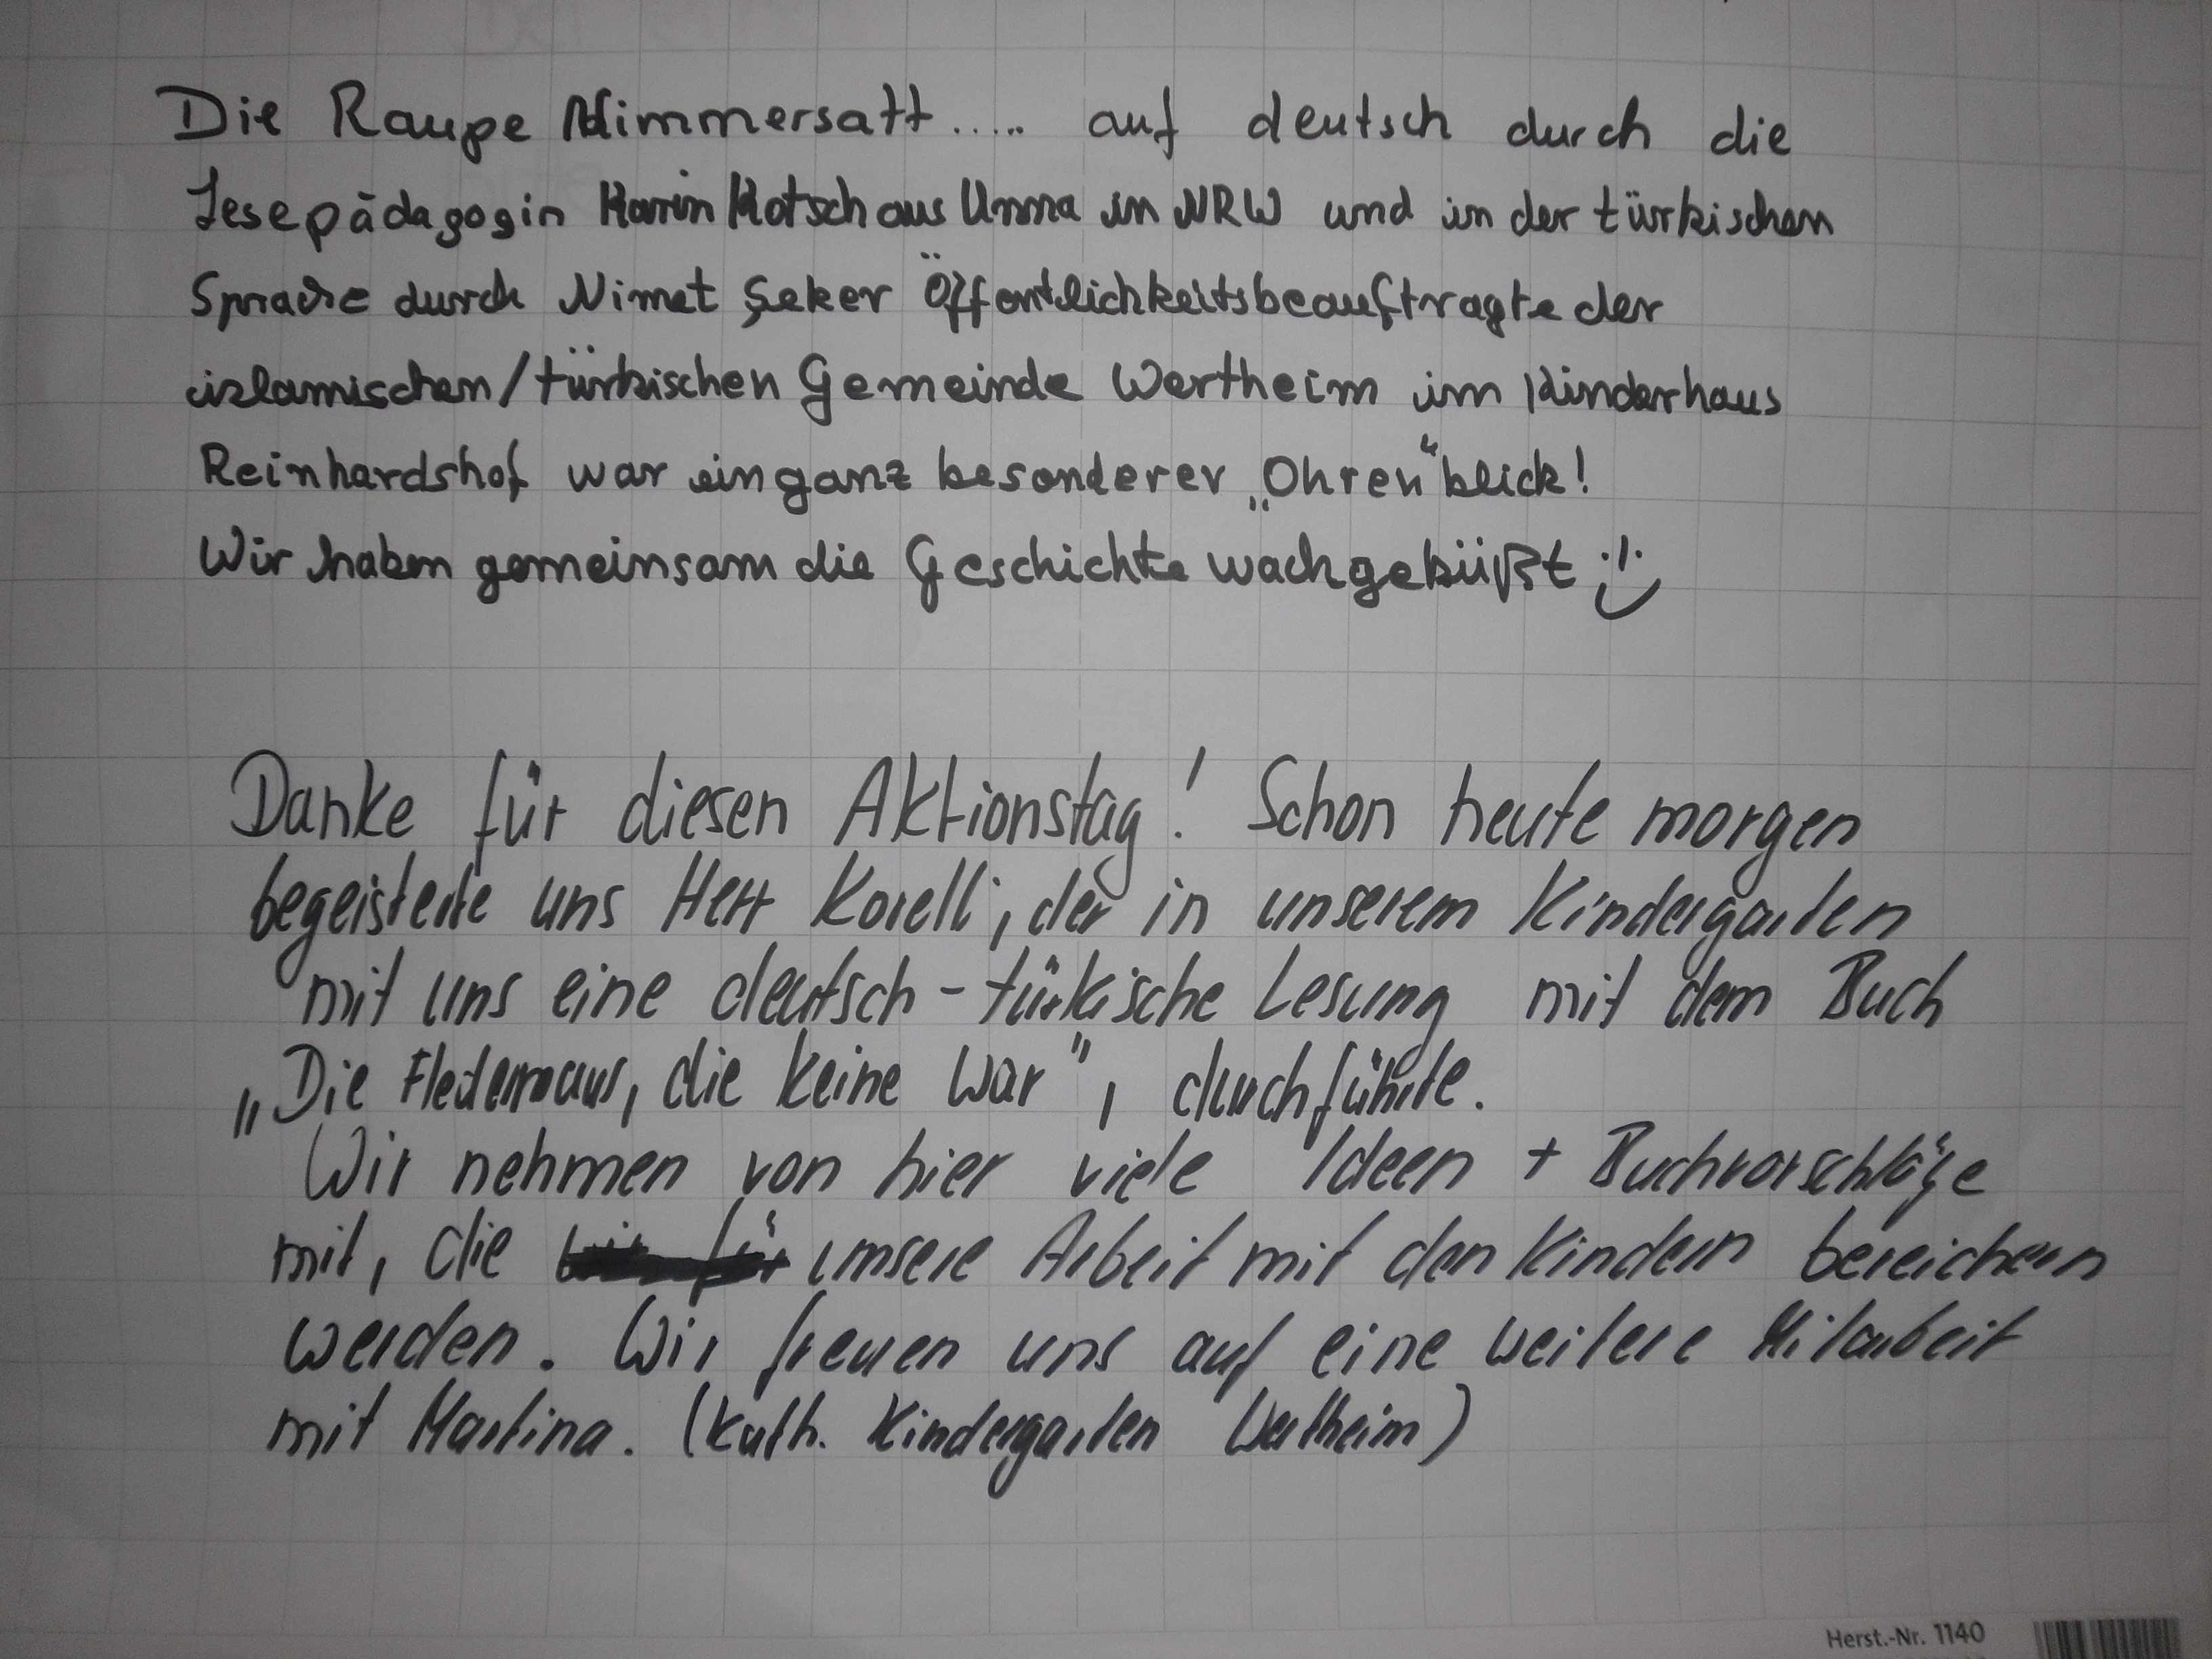 Die Raupe Nimmersatt..... auf deutsch durch die
Lesepädagogin Karin Kotsch aus Unna in NRW und in der türkischen
Sprache durch Nimet Şeker Öffentlichkeitsbeauftragte der
islamischen/türkischen Gemeinde Wertheim im Kinderhaus
Reinhardshof war ein ganz besonderer „Ohren“blick!
Wir haben gemeinsam die Geschichte wachgeküßt
Danke für diesen Aktionstag! Schon heute morgen
begeisterte uns Herr Korelli, der in unserem Kindergarten
mit uns eine deutsch-türkische Lesung mit dem Buch
„Die Fledermaus, die keine war", durchführte.
Wir nehmen von hier viele Ideen + Buchvorschläge
mit, die unsere Arbeit mit den Kindern bereichern
werden. Wir freuen uns auf eine weitere Mitarbeit
mit Martina. (kath. Kindergarten Wertheim)
Herst.-Nr. 1140